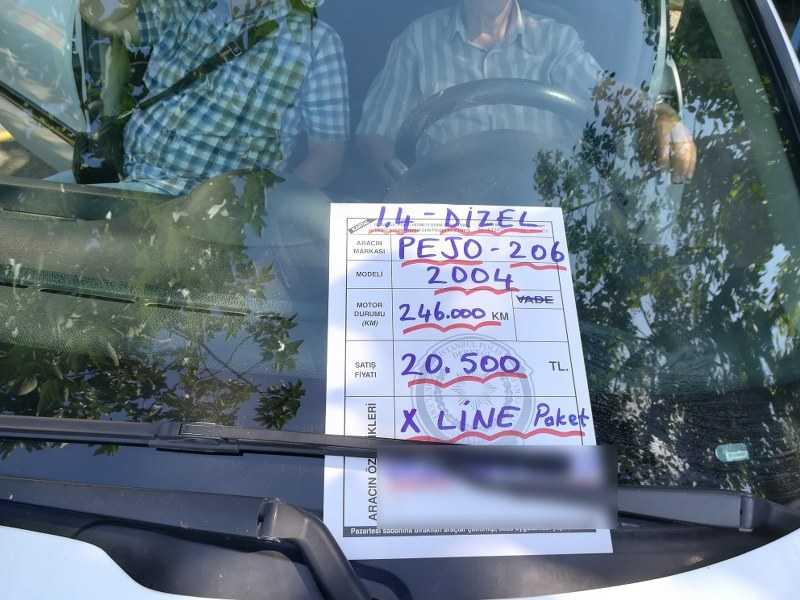 1.4 - DİZEL
ARACIN MARKASI PEJO - 206
MODELİ 2004
MOTOR DURUMU (KM) 246.000 KM VADE
SATIŞ FİYATI 20.500 TL.
X LİNE Paket